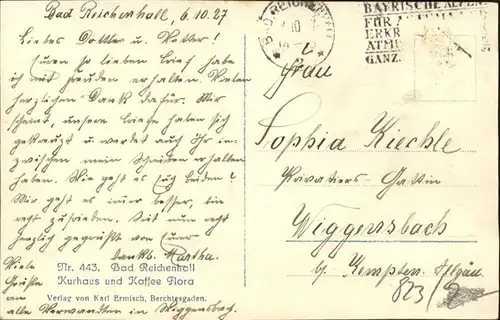 Bad Reichenhall, 6.10.27
Liebes Dottle u. Vetter!
Euren so lieben Brief habe
ich mit Freuden erhalten. Vielen
herzlichen Dank dafür. Mir
scheint, unsere Briefe haben sich
gekreuzt u. werdet auch Ihr in-
zwischen mein Schreiben erhalten
haben. Wie geht es Euch beiden?
Mir geht es immer besser, bin
recht zufrieden. Seid nun recht
herzlich gegrüßt von Eurer
dankb. Martha.
Viele
Grüße
an
alle Verwandten in Wiggensbach.
Nr. 443. Bad Reichenhall
Kurhaus und Kaffee Flora
Verlag von Karl Ermisch, Berchtesgaden.
BAD REICHENHALL
10
BAYRISCHE ALPEN
FÜR
ERKR
ATM
GANZ.
Frau
Sophia Kiechle
Privatiers-Gattin
Wiggensbach
b. Kempten. Allgäu.
823/2